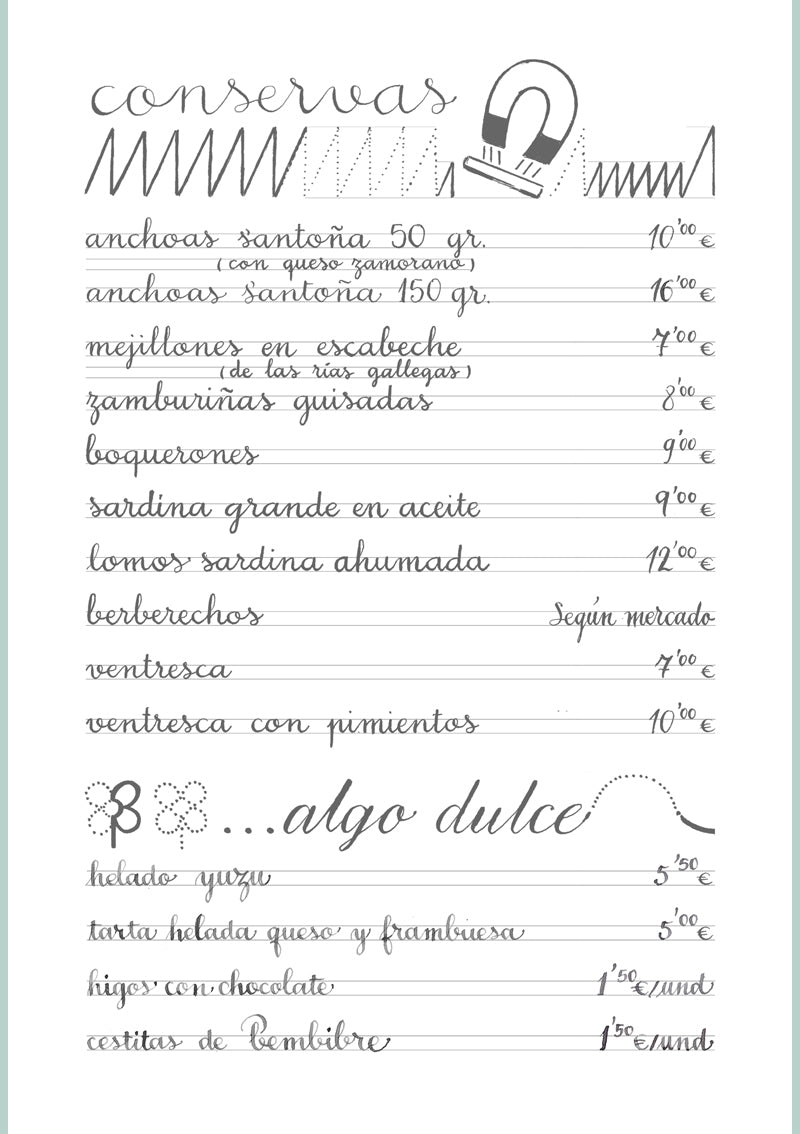 conservas
anchoas santoña 50 gr. 10'00 €
(con queso zamorano)
anchoas santoña 150 gr. 16'00 €
mejillones en escabeche 7'00 €
(de las rías gallegas)
zamburiñas guisadas 8'00 €
boquerones 9'00 €
sardina grande en aceite 9'00 €
lomos sardina ahumada 12'00 €
berberechos Según mercado
ventresca 7'00 €
ventresca con pimientos 10'00 €
...algo dulce
helado yuzu 5'50 €
tarta helada queso y frambuesa 5'00 €
higos con chocolate 1'50 €/und
cestitas de Bembibre 1'50 €/und